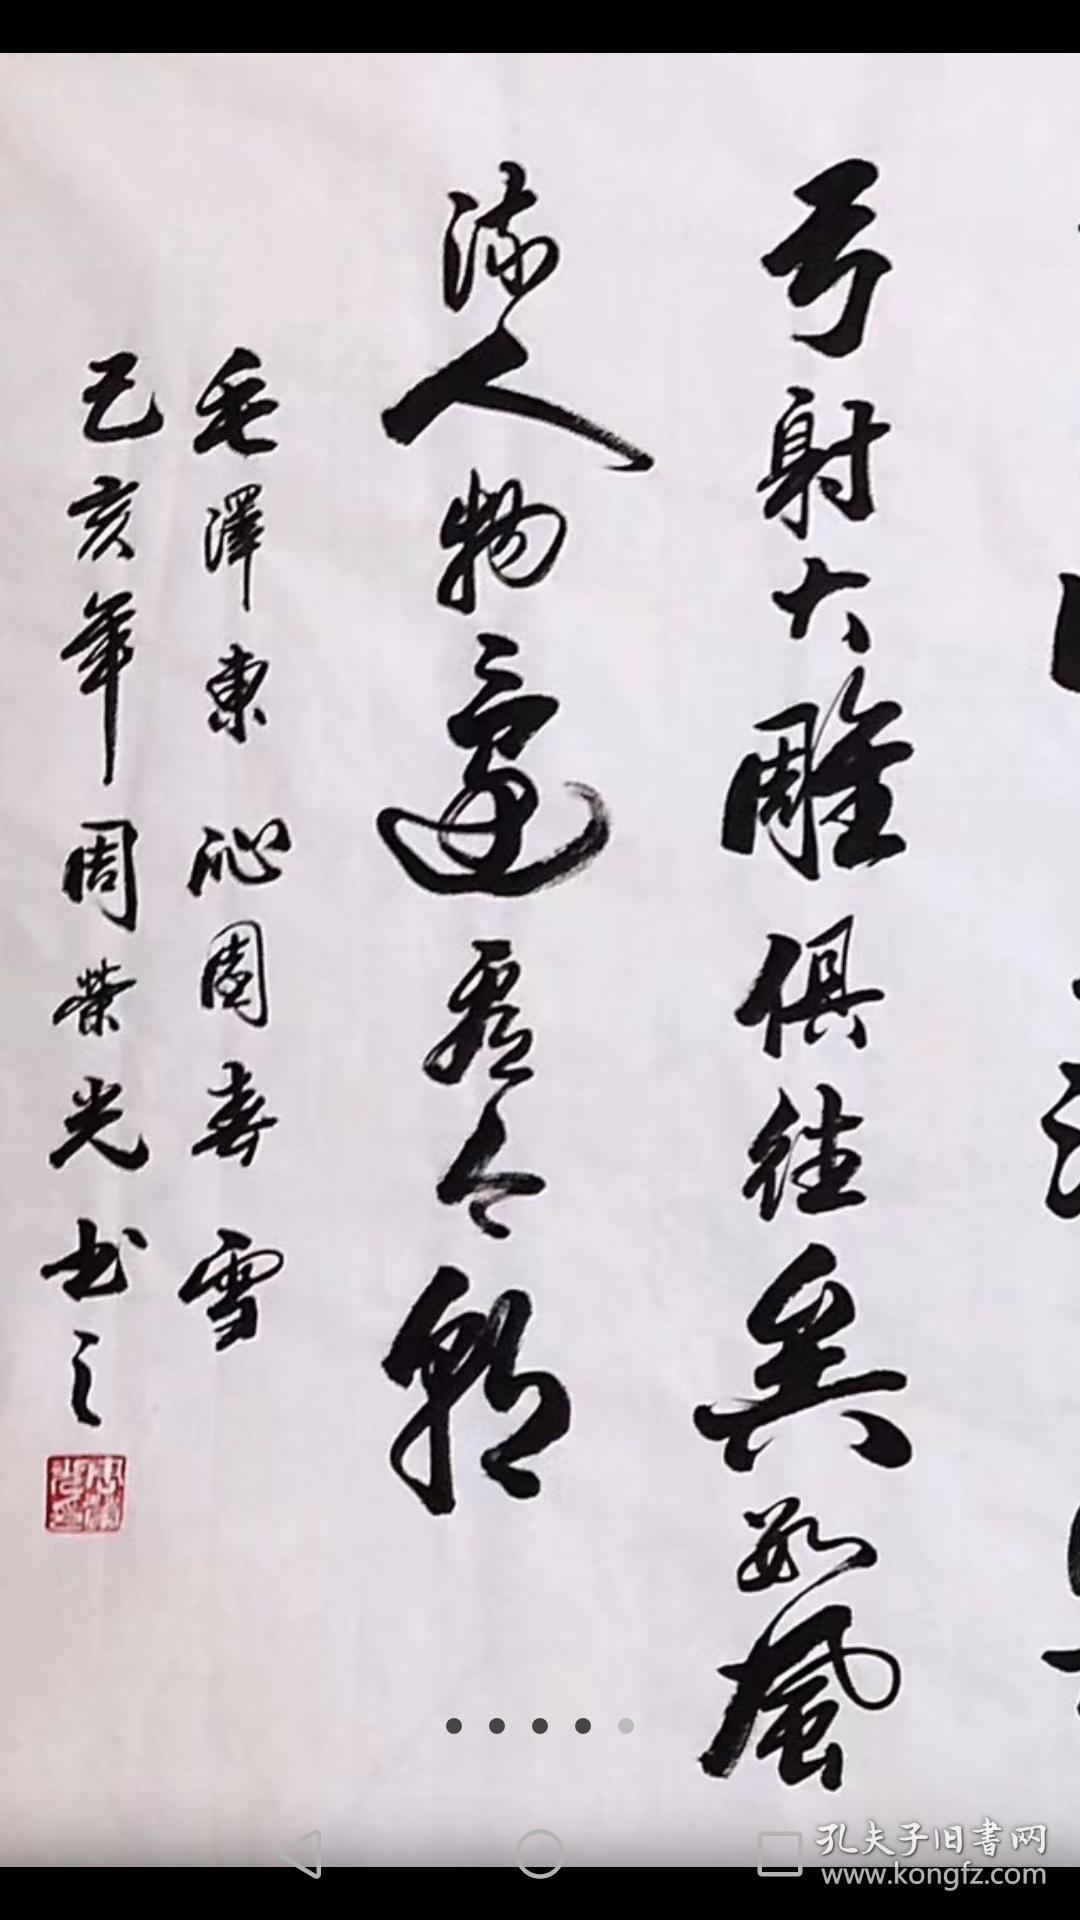 弓射大雕俱往矣數風
流人物還看今朝
毛澤東 沁園春 雪
己亥年周榮光书之
孔夫子旧書网
www.kongfz.com